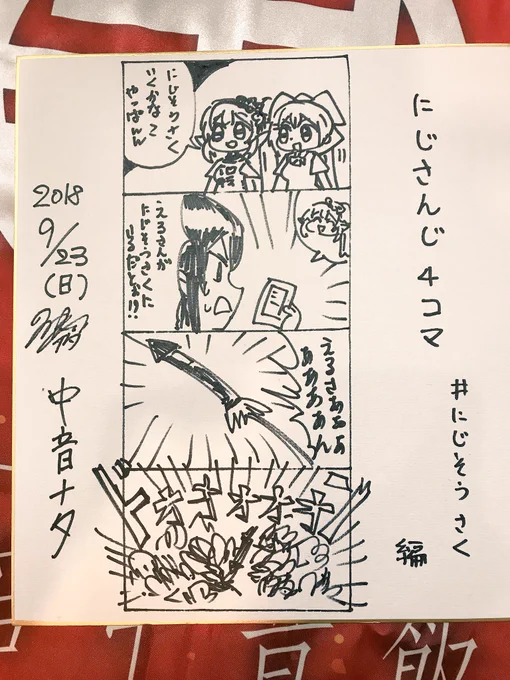 にじさんじ4コマ
#にじそうさく
編
にじそうさく
いくかなって
やっぱんん
えるさんが
にじそうさくに
いるだとぉ!?
えるさぁぁぁ
ああああん
ドォオオオオン
2018
9/23
(日)
中音ナタ